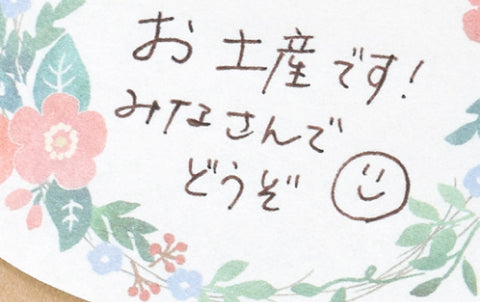 お土産です!
みなさんで
どうぞ